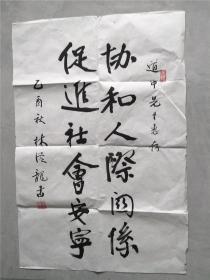 道中先生惠存
協和人際関係
促進社會安寧
乙酉秋 林德龍書